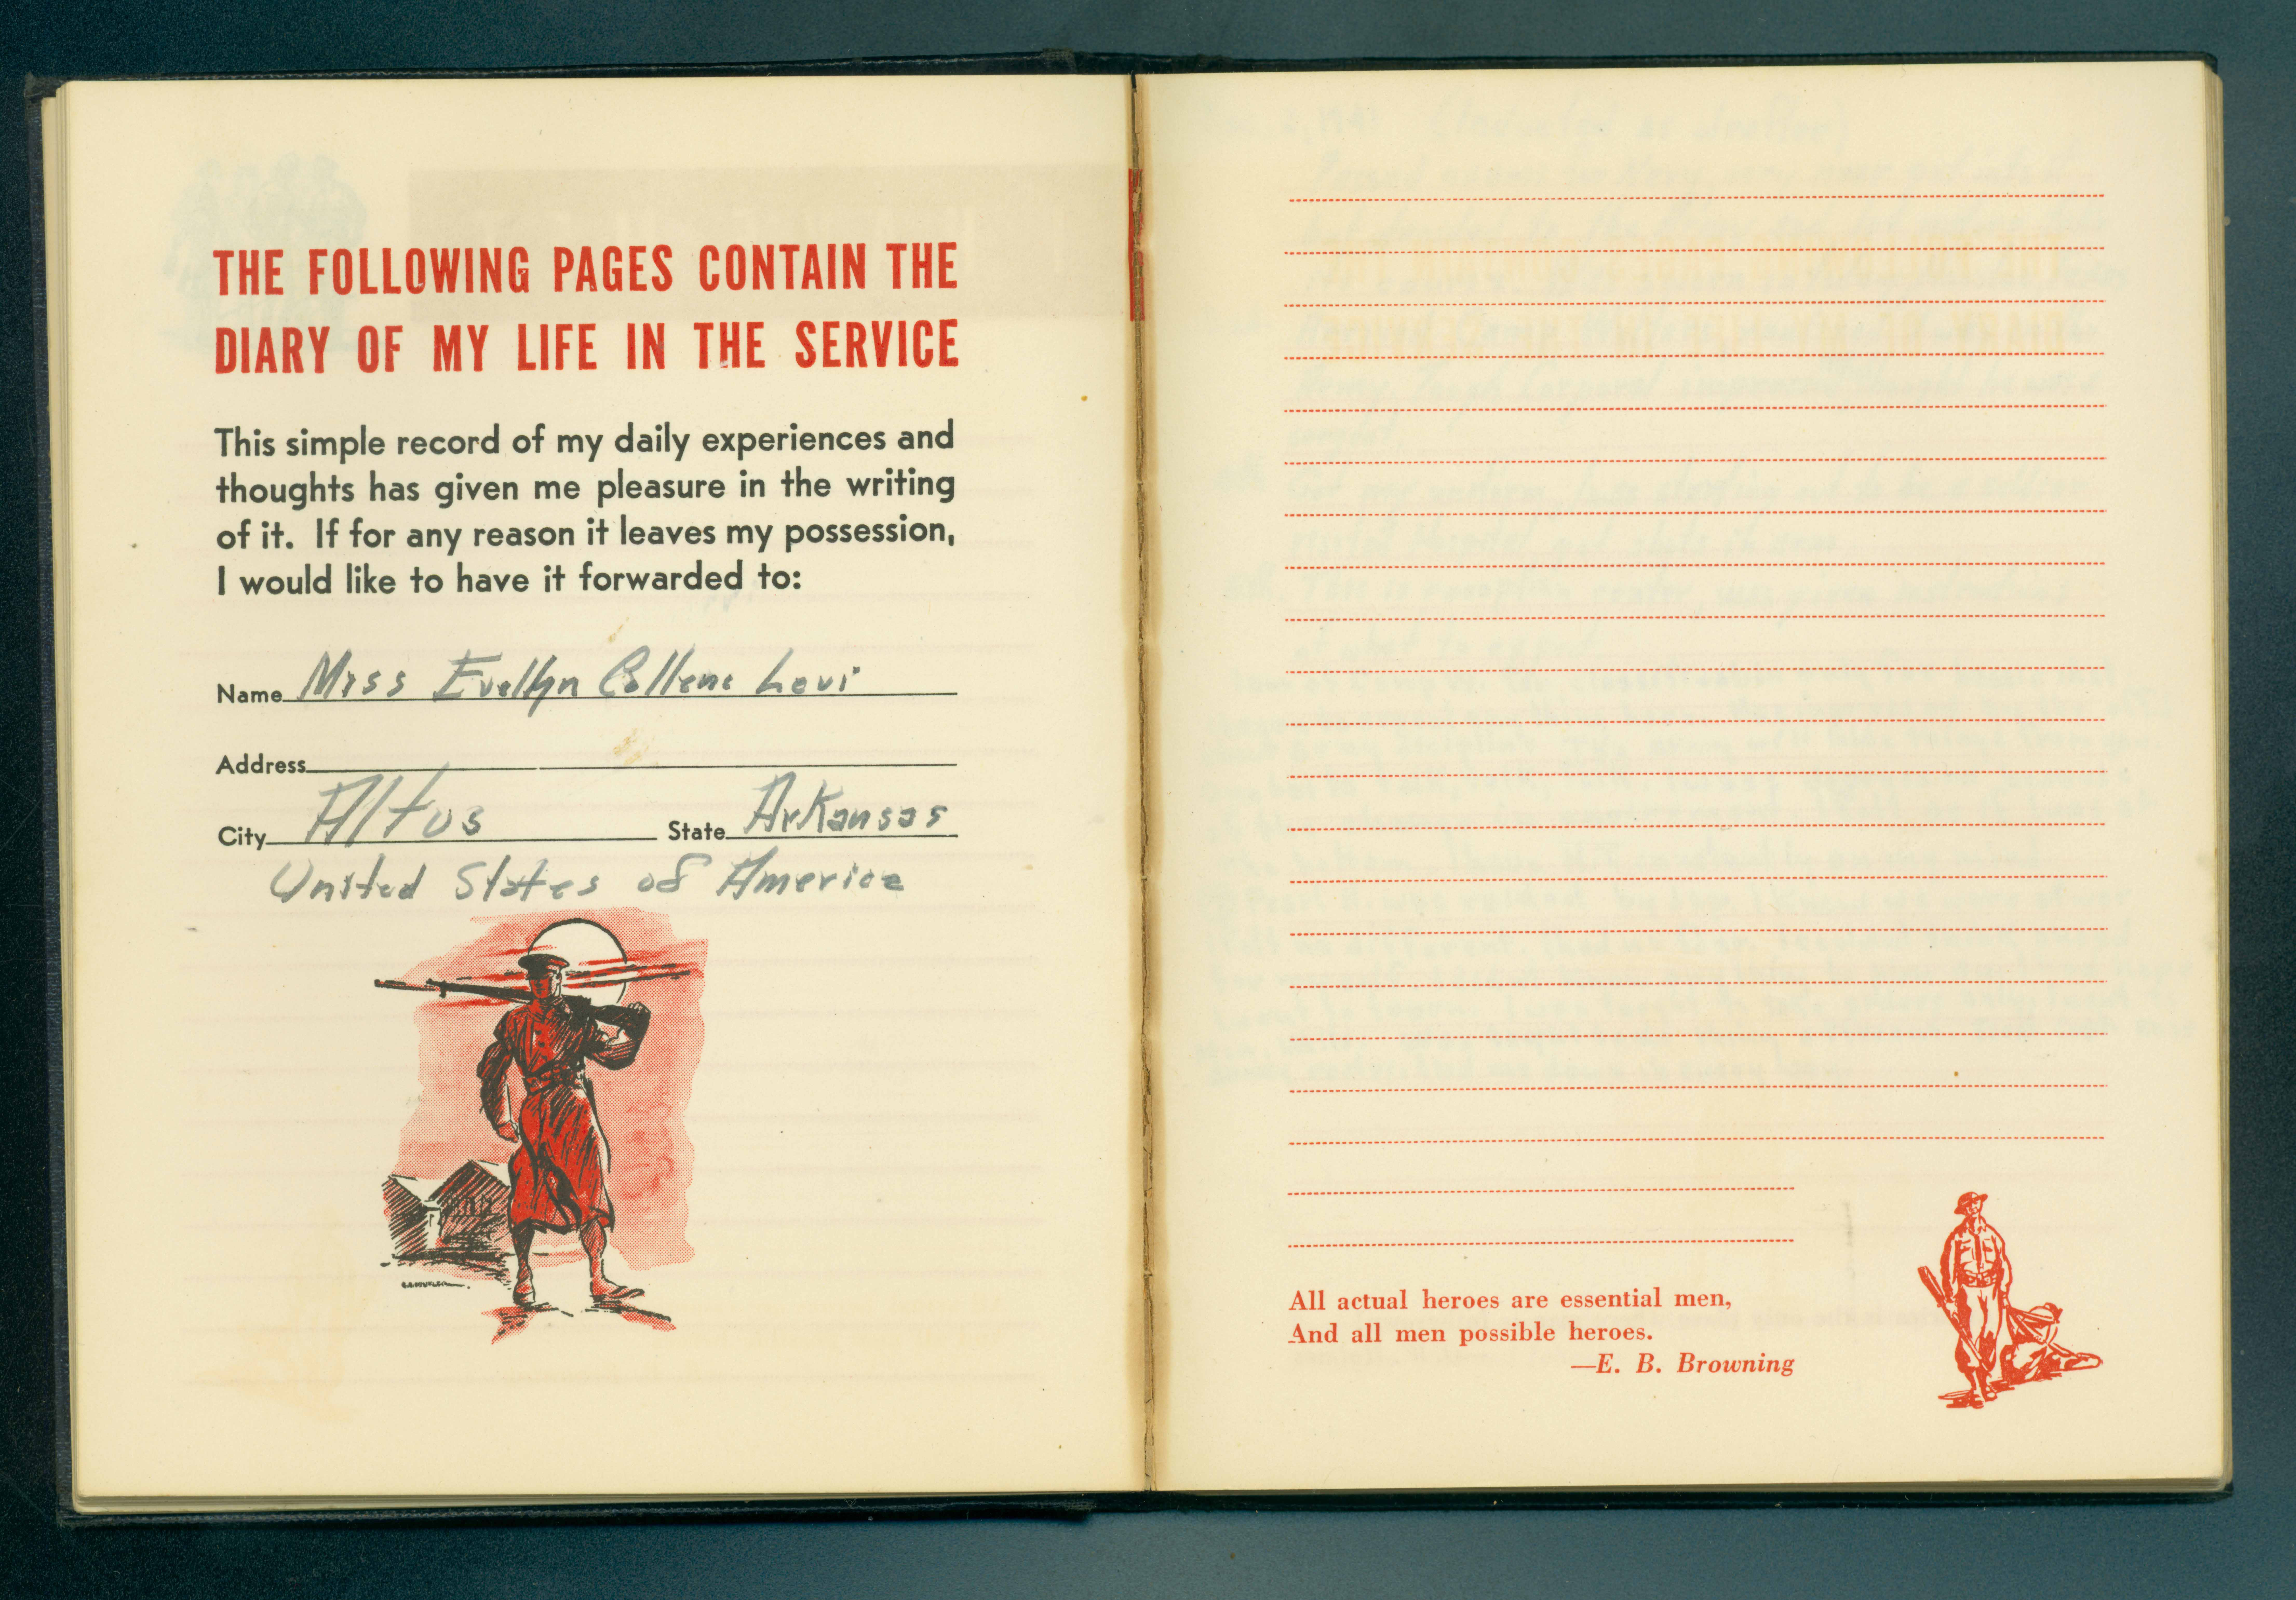 THE FOLLOWING PAGES CONTAIN THE
DIARY OF MY LIFE IN THE SERVICE
This simple record of my daily experiences and
thoughts has given me pleasure in the writing
of it. If for any reason it leaves my possession,
I would like to have it forwarded to:
Name Miss Evellyn Collene Levi
Address
City Altus State Arkansas
United States of America
All actual heroes are essential men,
And all men possible heroes.
—E. B. Browning